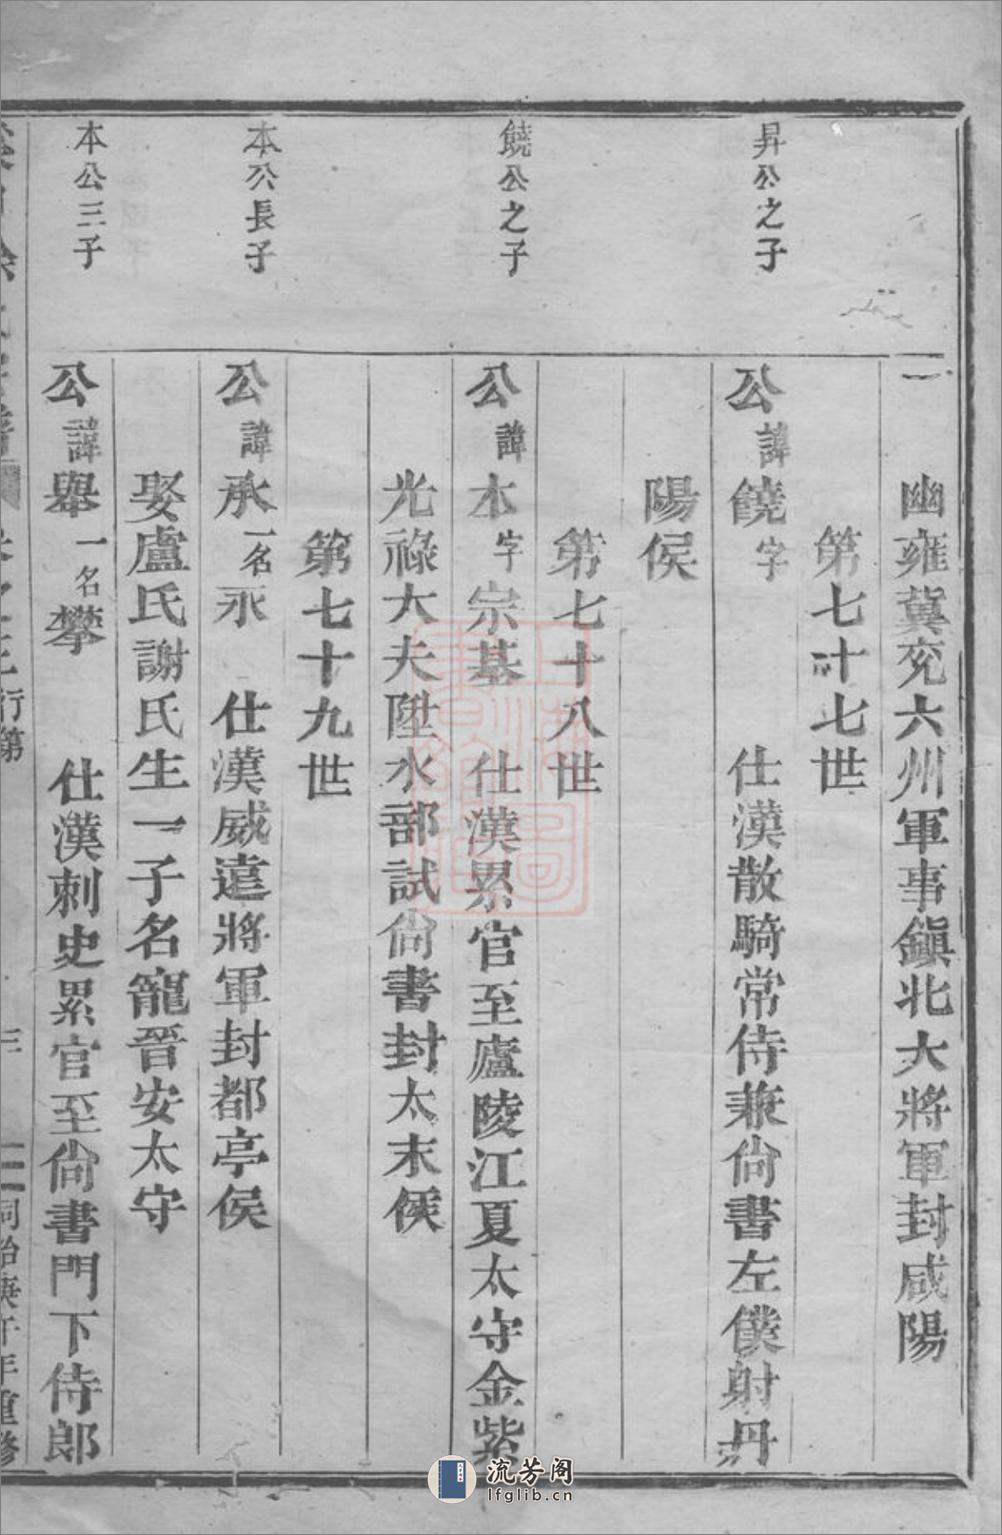 幽雍冀兖六州軍事鎭北大將軍封咸陽
第七十七世
昇公之子
公諱饒字 仕漢散騎常侍兼尙書左僕射丹
陽侯
第七十八世
饒公之子
公諱本字宗基 仕漢累官至廬陵江夏太守金紫
光祿大夫陞水部試尙書封太末侯
第七十九世
本公長子
公諱承一名永 仕漢威遠將軍封都亭侯
娶盧氏謝氏生一子名寵晉安太守
本公三子
公諱舉一名攀 仕漢刺史累官至尙書門下侍郎
行第
同治庚午年重修
流芳阁
lfglib.cn